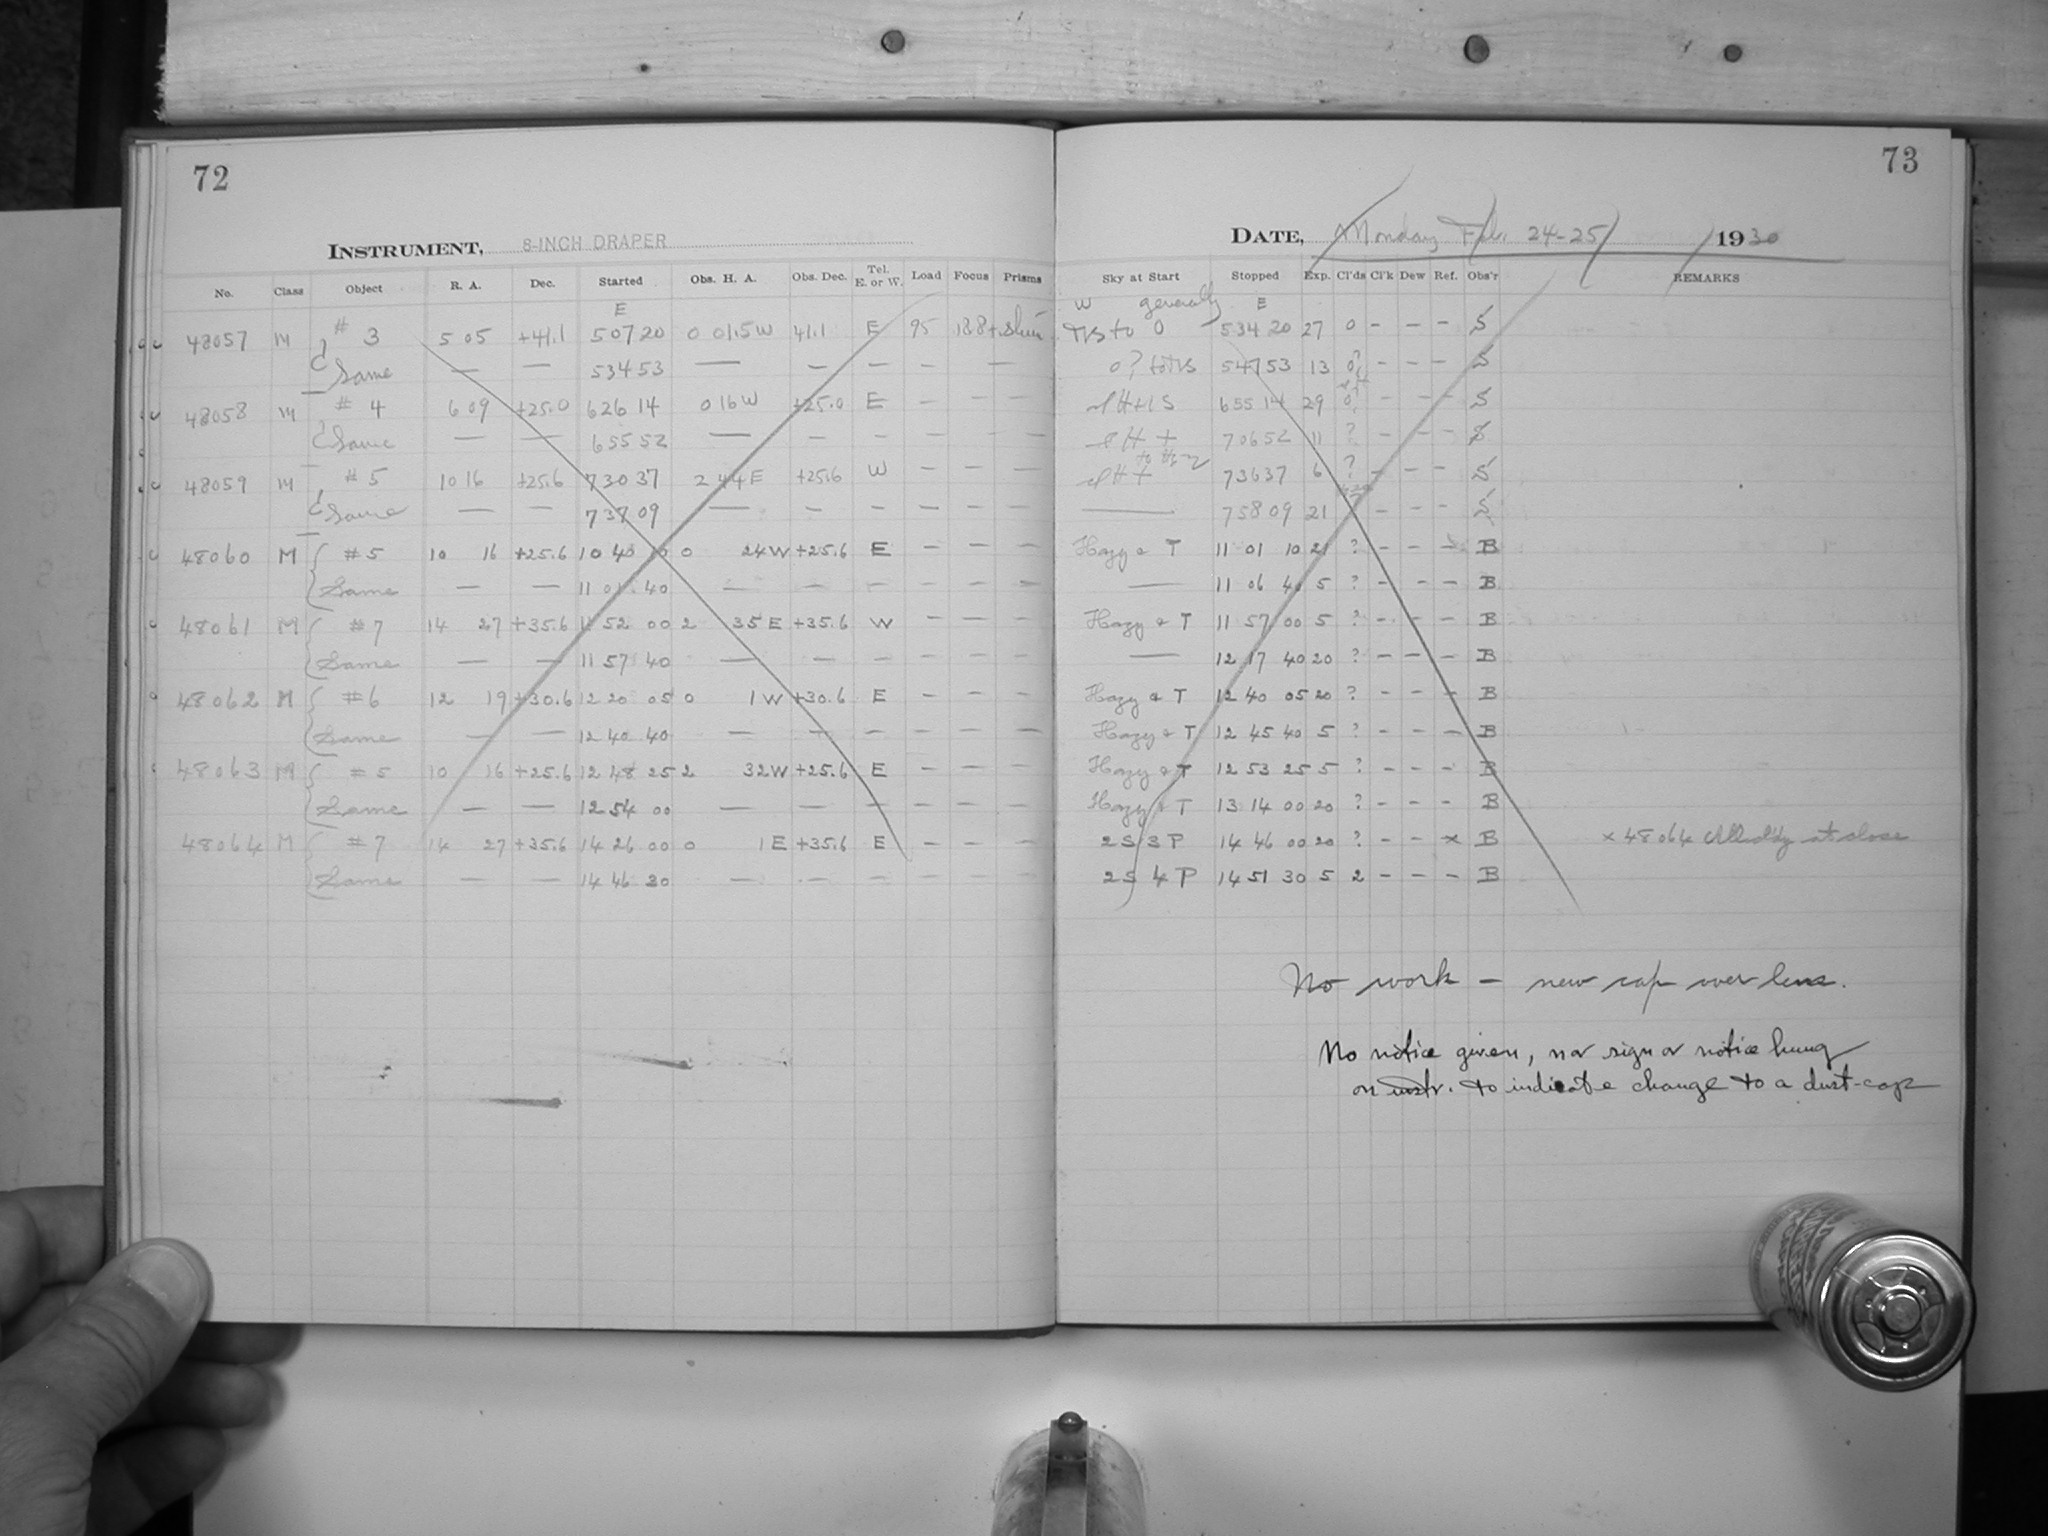 72
INSTRUMENT, 8-INCH DRAPER
No. Class Object R. A. Dec. Started Obs. H. A. Obs. Dec. Tel. E. or W. Load Focus Prisms
E
48057 M # 3 5 05 +41.1 5 07 20 0 01.5 W 41.1 E 95
Same — — 5 34 53 — — — — —
48058 M # 4 6 09 +25.0 6 26 14 0 16 W +25.0 E — — —
Same — — 6 55 52 — — — — — —
48059 M # 5 10 16 +25.6 7 30 37 2 44 E +25.6 W — — —
Same — — 7 37 09 — — — — — —
48060 M #5 10 16 +25.6 10 40 10 0 24 W +25.6 E — — —
Same — — 11 01 40 — — — — — —
48061 M #7 14 27 +35.6 11 52 00 2 35 E +35.6 W — — —
Same — — 11 57 40 — — — — — —
48062 M #6 12 19 +30.6 12 20 05 0 1 W +30.6 E — — —
Same — — 12 40 40 — — — — — —
48063 M #5 10 16 +25.6 12 48 25 2 32 W +25.6 E — — —
Same — — 12 54 00 — — — — — —
48064 M #7 14 27 +35.6 14 26 00 0 1 E +35.6 E — — —
Same — — 14 46 30 — — — — — —
73
DATE, Monday Feb. 24-25 1930
Sky at Start Stopped Exp. Cl'ds Cl'k Dew Ref. Obs'r REMARKS
W generally E
to 0 5 34 20 27 0 – – – S
0? to 5 47 53 13 0? – – – S
6 55 14 29 0? – – – S
7 06 52 11 ? – – – S
7 36 37 6 ? – – – S
— 7 58 09 21 – – – S
Hazy & T 11 01 10 21 ? – – – B
— 11 06 40 5 ? – – – B
Hazy & T 11 57 00 5 ? – – – B
— 12 17 40 20 ? – – – B
Hazy & T 12 40 05 20 ? – – – B
Hazy & T 12 45 40 5 ? – – – B
Hazy & T 12 53 25 5 ? – – – B
Hazy & T 13 14 00 20 ? – – – B
2S 3P 14 46 00 20 ? – – x B x 48064 at close
2S 4P 14 51 30 5 2 – – – B
No work – new cap over lens.
No notice given, nor sign or notice hung
on instr. to indicate change to a dust-cap